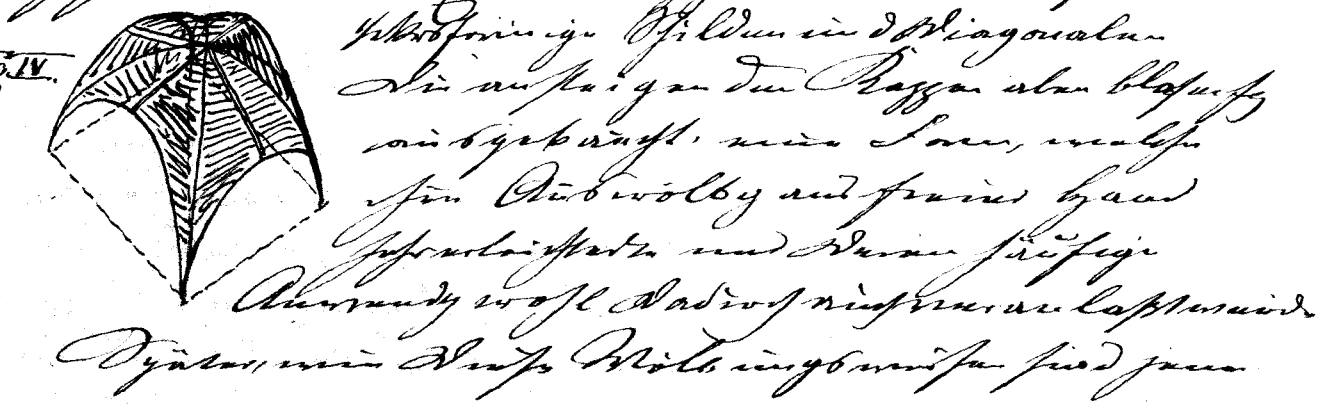 IV.
förmige Schilden und Diagonalen
die ansteigenden Kappen aber blasenfg
ausgebaucht. eine Form, welche
ihre Auswölbg aus freier Hand
sehr erleichterte und deren häufige
Anwendg wohl dadurch auch veranlaßt wurde.
Später, wie diese Wölbungsweisen sind jene